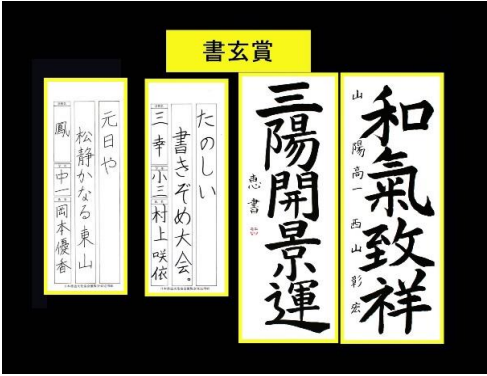 書玄賞
和氣致祥
山陽高一 西山彰宏
三陽開景運
恵書
たのしい
書きぞめ大会。
三幸 小三 村上咲依
元日や
松静かなる東山
鳳 中一 岡本優香